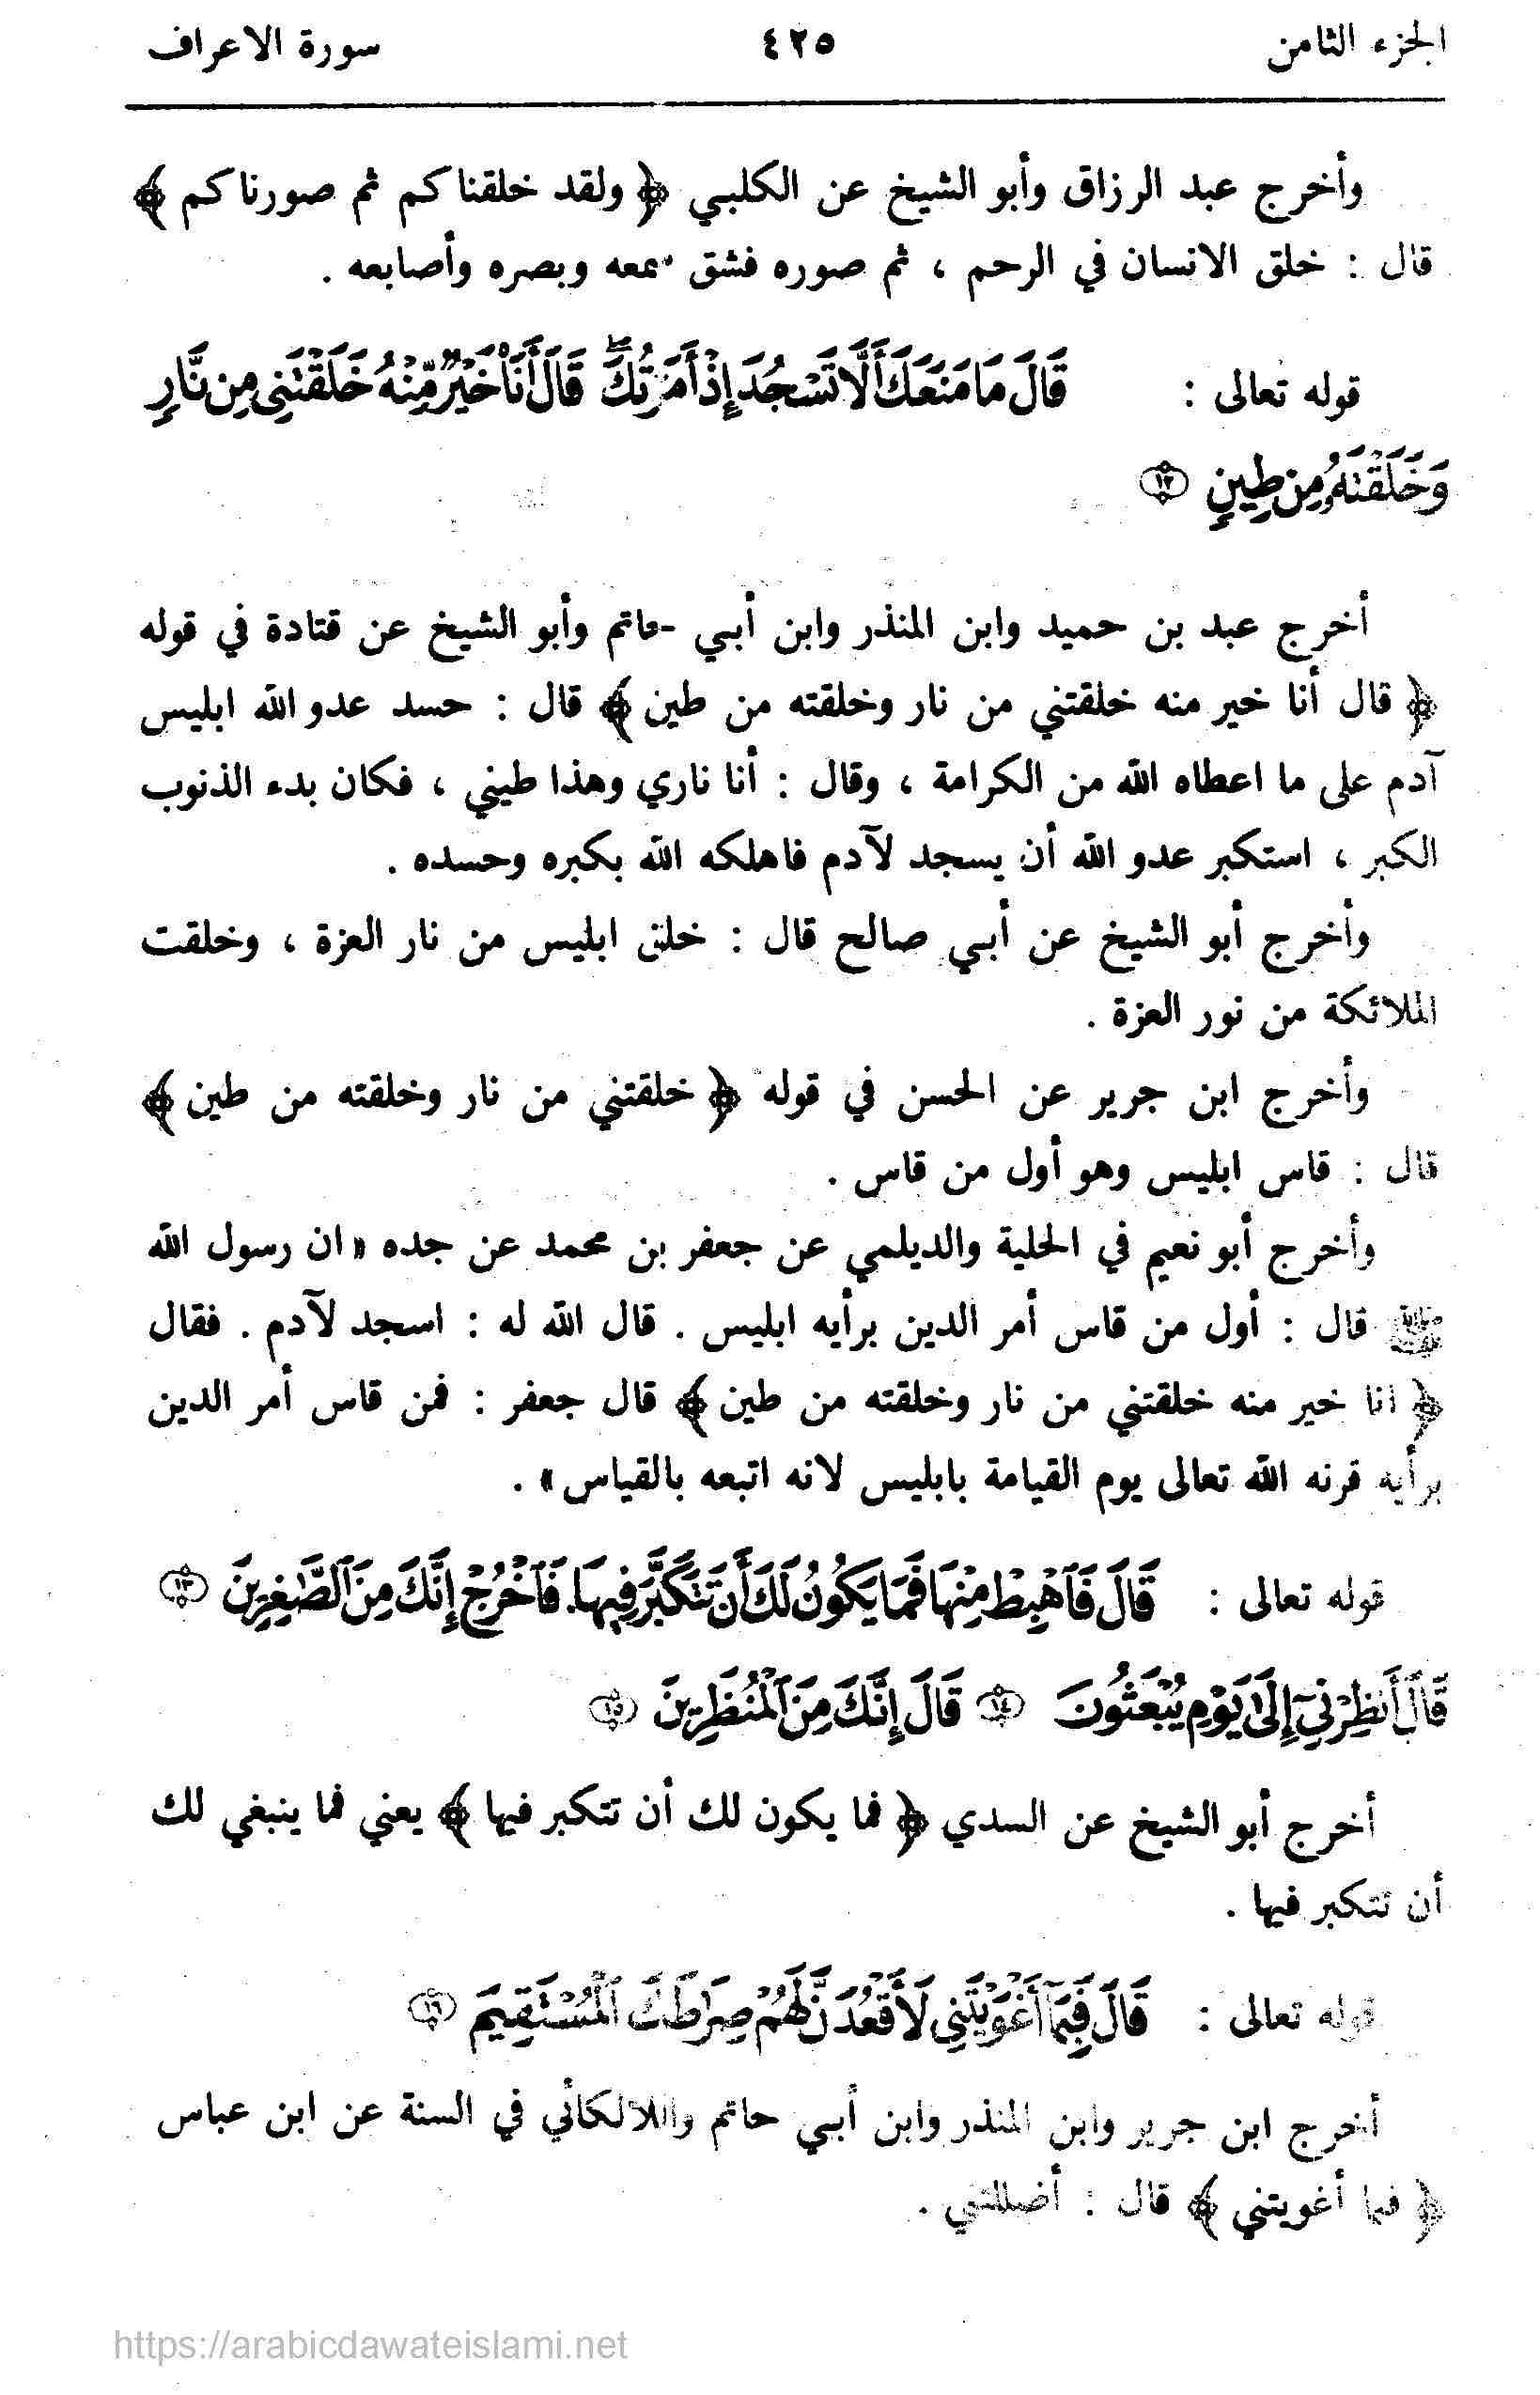 الجزء الثامن ٤٢٥ سورة الاعراف
وأخرج عبد الرزاق وأبو الشيخ عن الكلبي ﴿ ولقد خلقناكم ثم صورناكم ﴾
قال : خلق الانسان في الرحم ، ثم صوره فشق سمعه وبصره وأصابعه .
قوله تعالى : قَالَ مَا مَنَعَكَ أَلَّا تَسْجُدَ إِذْ أَمَرْتُكَ ۖ قَالَ أَنَا۠ خَيْرٌ مِّنْهُ خَلَقْتَنِى مِن نَّارٍ
وَخَلَقْتَهُۥ مِن طِينٍ ١٢
أخرج عبد بن حميد وابن المنذر وابن أبي حاتم وأبو الشيخ عن قتادة في قوله
﴿ قال أنا خير منه خلقتني من نار وخلقته من طين ﴾ قال : حسد عدو الله ابليس
آدم على ما اعطاه الله من الكرامة ، وقال : أنا ناري وهذا طيني ، فكان بدء الذنوب
الكبر ، استكبر عدو الله أن يسجد لآدم فاهلكه الله بكبره وحسده .
وأخرج أبو الشيخ عن أبي صالح قال : خلق ابليس من نار العزة ، وخلقت
الملائكة من نور العزة .
وأخرج ابن جرير عن الحسن في قوله ﴿ خلقتني من نار وخلقته من طين ﴾
قال : قاس ابليس وهو أول من قاس .
وأخرج أبو نعيم في الحلية والديلمي عن جعفر بن محمد عن جده « ان رسول الله
ﷺ قال : أول من قاس أمر الدين برأيه ابليس . قال الله له : اسجد لآدم . فقال
﴿ انا خير منه خلقتني من نار وخلقته من طين ﴾ قال جعفر : فمن قاس أمر الدين
برأيه قرنه الله تعالى يوم القيامة بابليس لانه اتبعه بالقياس » .
قوله تعالى : قَالَ فَٱهْبِطْ مِنْهَا فَمَا يَكُونُ لَكَ أَن تَتَكَبَّرَ فِيهَا فَٱخْرُجْ إِنَّكَ مِنَ ٱلصَّٰغِرِينَ ١٣
قَالَ أَنظِرْنِىٓ إِلَىٰ يَوْمِ يُبْعَثُونَ ١٤ قَالَ إِنَّكَ مِنَ ٱلْمُنظَرِينَ ١٥
أخرج أبو الشيخ عن السدي ﴿ فما يكون لك أن تتكبر فيها ﴾ يعني فما ينبغي لك
أن تتكبر فيها .
قوله تعالى : قَالَ فَبِمَآ أَغْوَيْتَنِى لَأَقْعُدَنَّ لَهُمْ صِرَٰطَكَ ٱلْمُسْتَقِيمَ ١٦
أخرج ابن جرير وابن المنذر وابن أبي حاتم واللالكائي في السنة عن ابن عباس
﴿ فبما أغويتني ﴾ قال : أضللتني .
https://arabicdawateislami.net